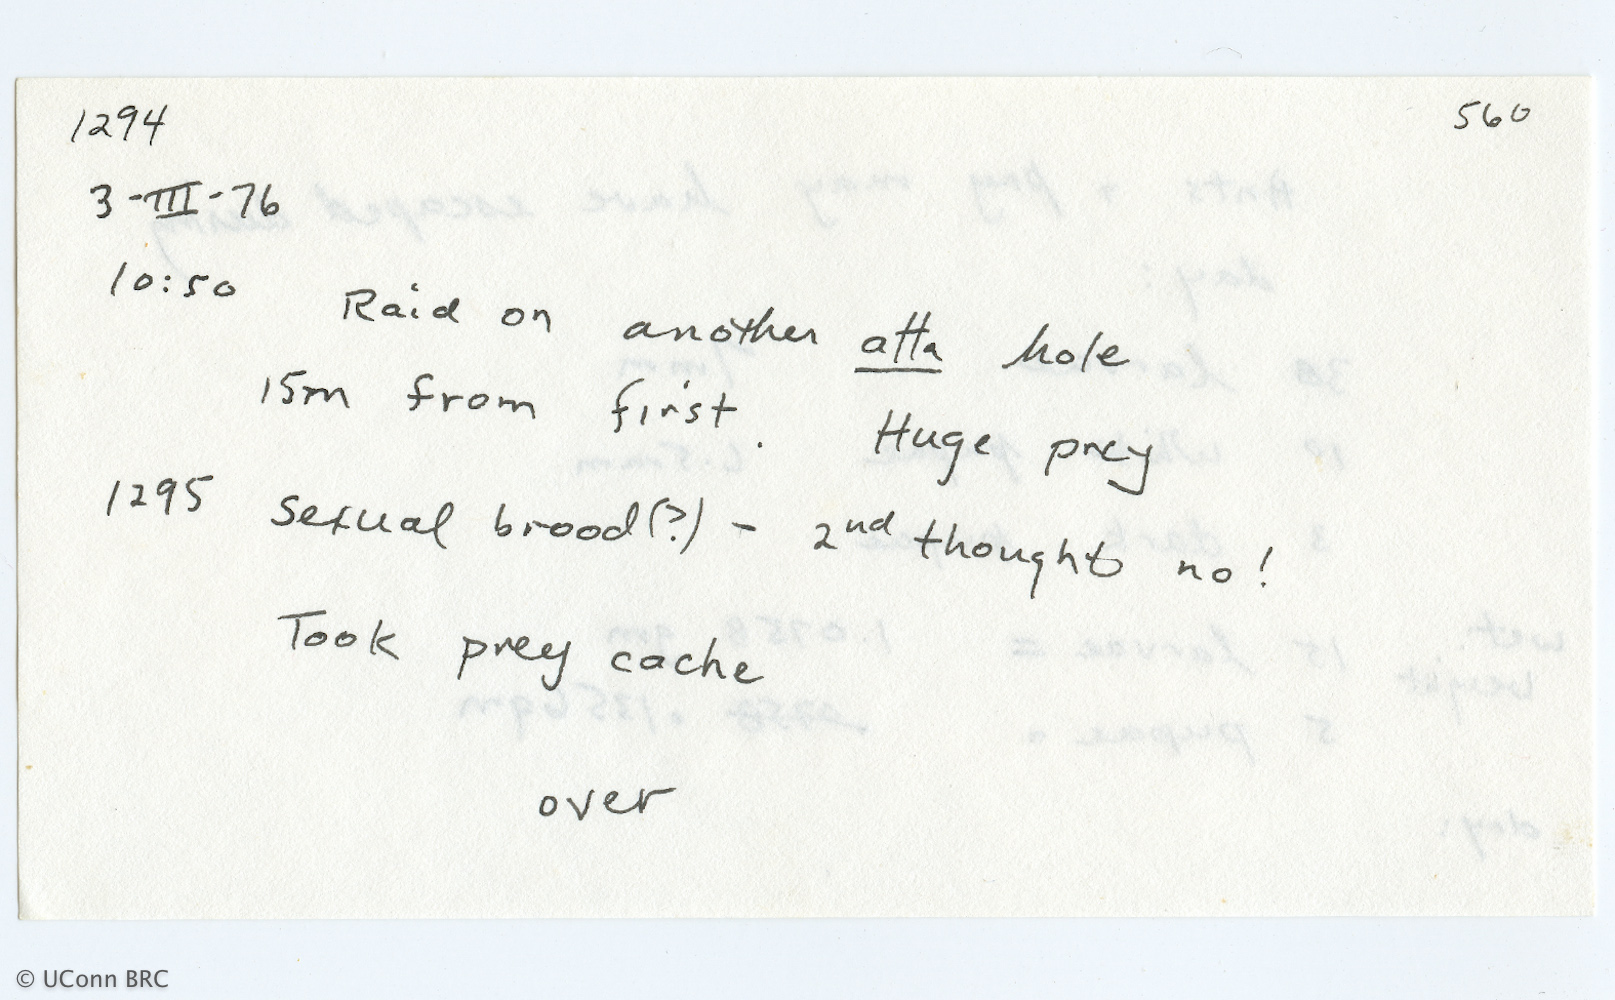 1294 560
3-III-76
10:50 Raid on another atta hole
15m from first. Huge prey
1295 Sexual brood(?) - 2nd thought no!
Took prey cache
over
© UConn BRC